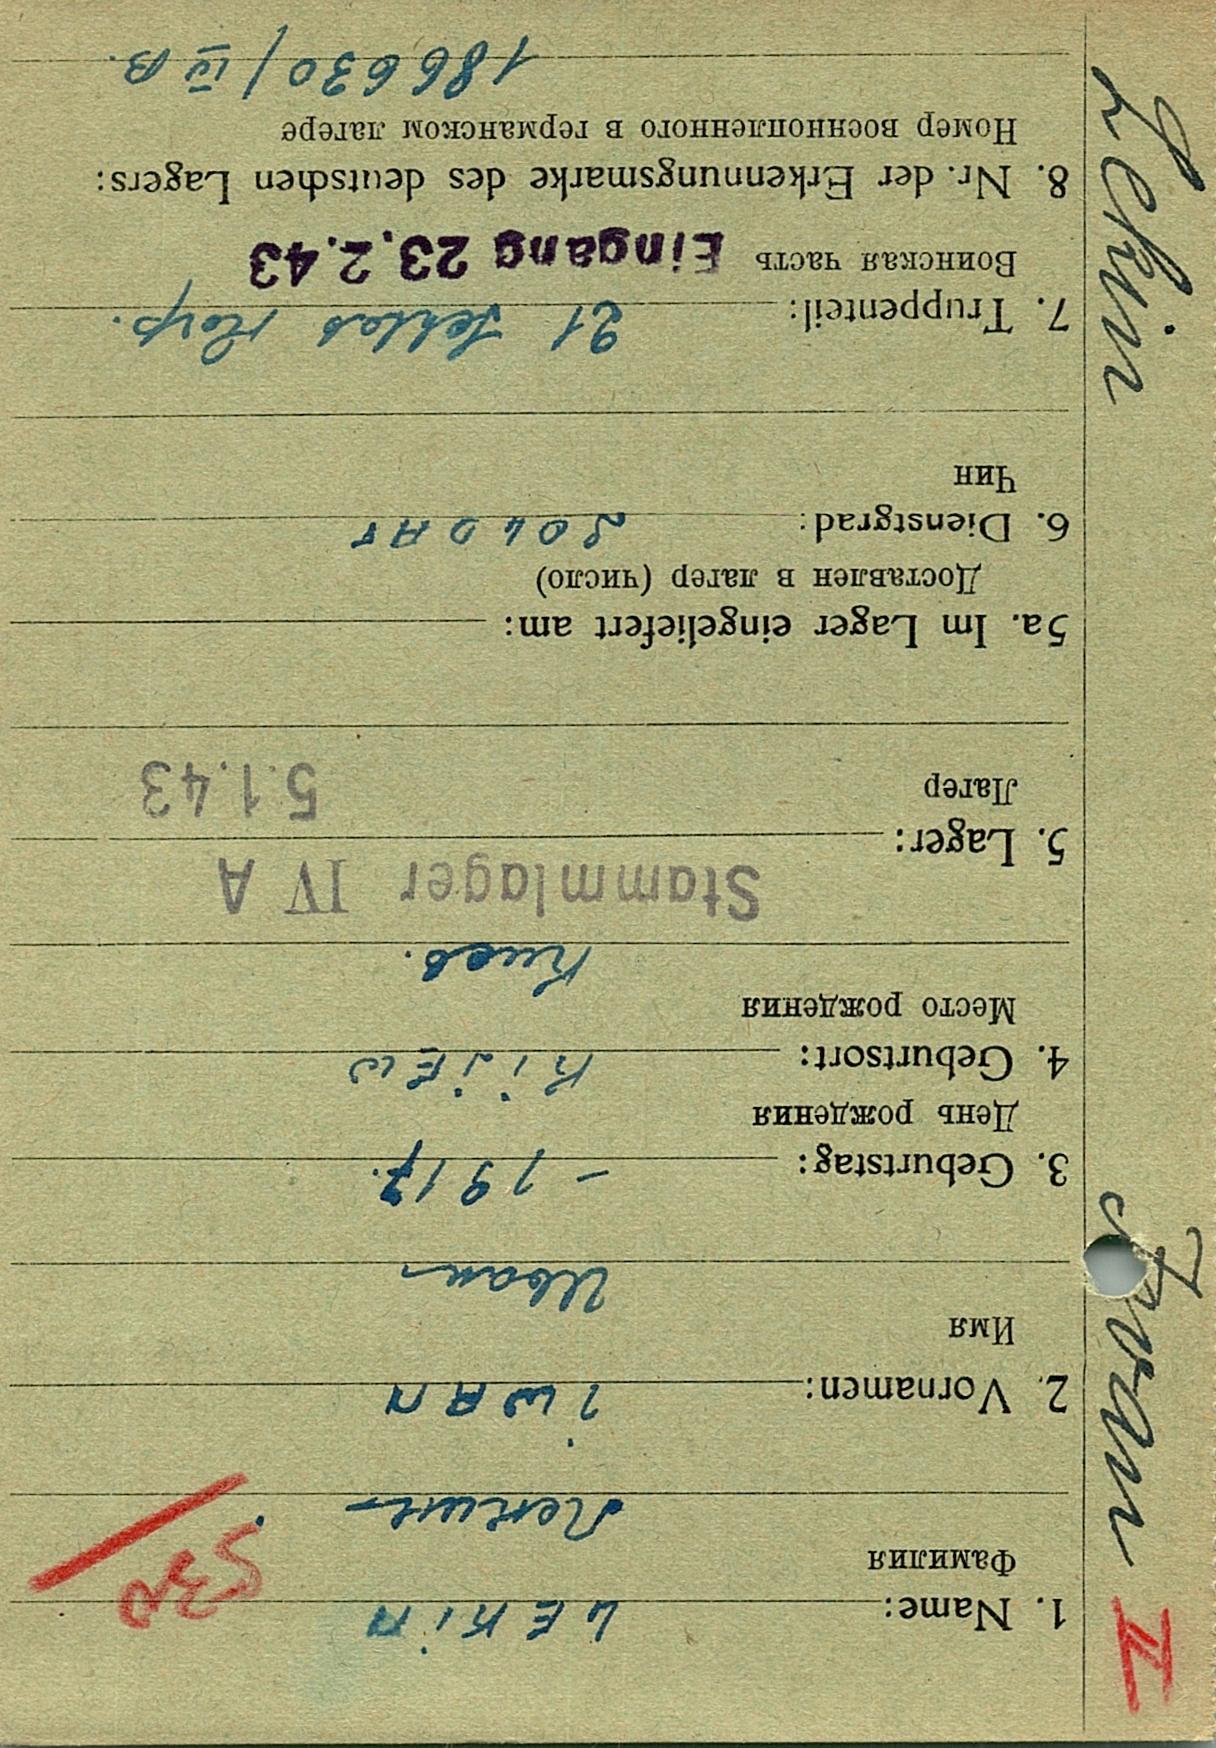 Lekin Iwan II
532
1. Name: LEKiN
Фамилия
Лекин
2. Vornamen: iWAN
Имя
Иван
3. Geburtstag: – 1917.
День рождения
4. Geburtsort: KiJEW
Место рождения
Киев.
Stammlager IV A
5. Lager:
Лагер
5.1.43
5a. Im Lager eingeliefert am:
Доставлен в лагер (число)
6. Dienstgrad: SOLDAT
Чин
7. Truppenteil: 21
Воинская часть Eingang 23.2.43
8. Nr. der Erkennungsmarke des deutschen Lagers:
Номер военнопленного в германском лагере
186630/IV B.